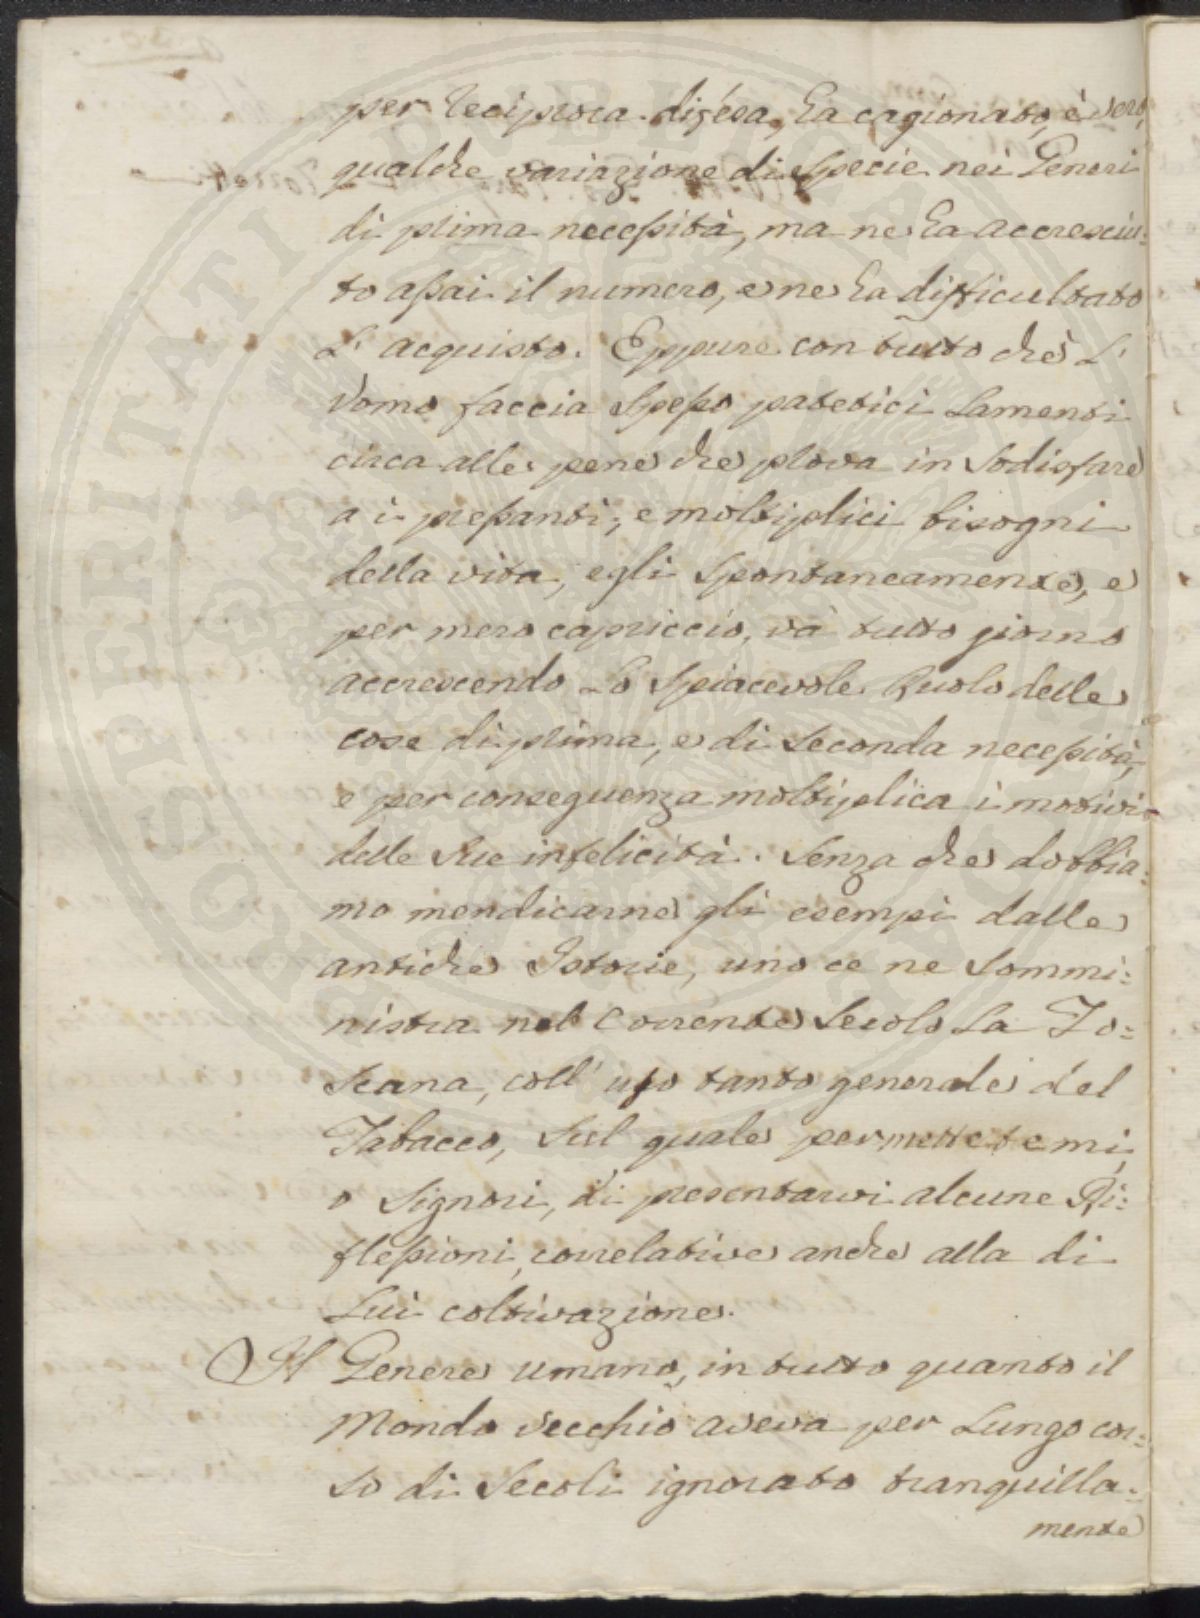 per reciproca difesa, ha cagionato, è vero,
qualche variazione di Specie nei Generi
di prima necessità, ma ne ha accresciu=
to assai il numero, e ne ha difficultato
L' acquisto. Eppure con tutto che L'
Vomo faccia Spesso patetici Lamenti
circa alle pene che prova in Sodisfare
a i pressanti, e moltiplici bisogni
della vita, egli Spontaneamente, e
per mero capriccio, và tutto giorno
accrescendo Lo Spiacevole Ruolo delle
cose di prima, e di Seconda necessità,
e per conseguenza moltiplica i motivi
delle Sue infelicità. Senza che dobbia=
mo mendicarne gli esempi dalle
antiche Istorie, uno ce ne Sommi=
nistra nel Corrente Secolo La To=
scana, coll' uso tanto generale del
Tabacco, Sul quale permettetemi,
o Signori, di presentarvi alcune Ri=
flessioni, correlative anche alla di
Lui coltivazione.
Il Genere umano, in tutto quanto il
Mondo vecchio aveva per Lungo cor=
so di Secoli ignorato tranquilla=
mente
PROSPERITATI PUBLICAE AUGENDAE